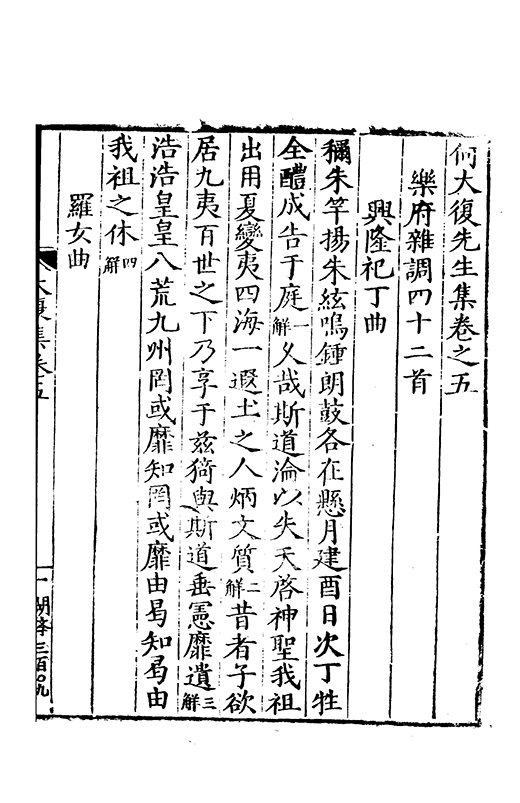 何大復先生集卷之五
樂府雜調四十二首
興隆祀丁曲
穪朱竿揚朱絃鳴鍾朗鼓各在懸月建酉日次丁牲
全醴成告于庭一解久哉斯道淪以失天啓神聖我祖
出用夏變夷四海一遐土之人炳文質二解昔者子欲
居九夷百世之下乃享于兹猗與斯道垂憲靡遺三解
浩浩皇皇八荒九州罔或靡知罔或靡由曷知曷由
我祖之休四解
羅女曲
大復集卷五
一
三百〇九